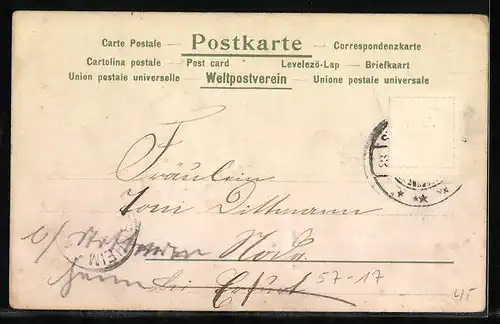 Carte Postale — Postkarte — Correspondenzkarte
Cartolina postale — Post card Levelező-Lap — Briefkaart
Union postale universelle — Weltpostverein — Unione postale universale
Fräulein
Toni Dittmann
Nöda
bei Erfurt
57-17
HEIM